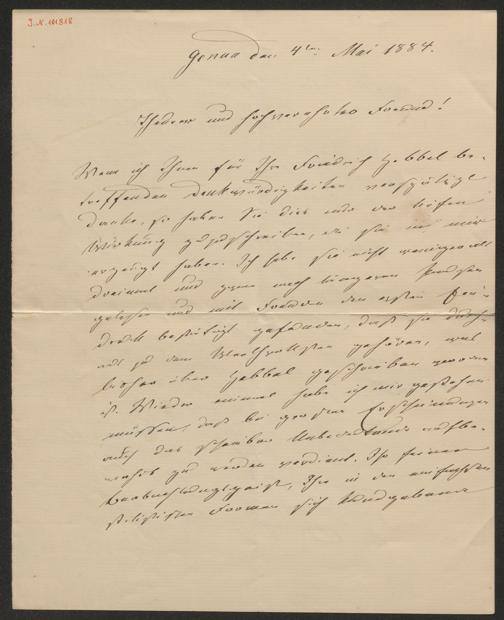 I. N. 101818
Genua den 4ten Mai 1884.
Theurer und hochverehrter Freund!
Wenn ich Ihnen für Ihre Friedrich Hebbel be-
treffenden Denkwürdigkeiten verspätet
danke, so haben Sie dies nur der tiefen
Wirkung zuzuschreiben, die sie in mir
erzeugt haben. Ich habe sie nicht weniger als
dreimal und zwar nach längeren Pausen
gelesen und mit Freuden den ersten Ein-
druck bestätigt gefunden, daß sie durch-
aus zu dem Werthvollsten gehören, was
bisher über Hebbel geschrieben worden
ist. Wieder einmal habe ich mir gestehen
müssen, daß bei großen Erscheinungen
auch das scheinbar Unbedeutende aufbe-
wahrt zu werden verdient. Ihr feiner
Beobachtungsgeist, Ihre in den einfachsten
stilistischen Formen sich kundgebende